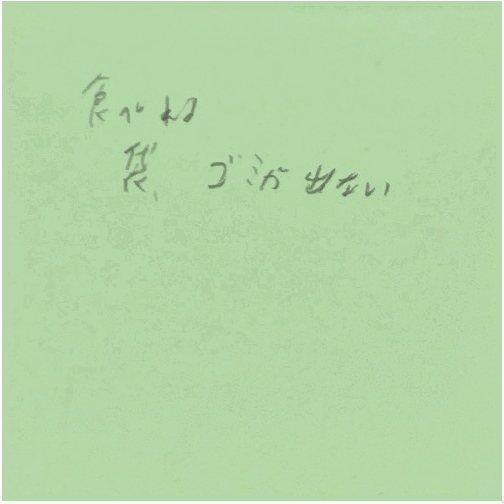 食べれる
袋、ゴミが出ない